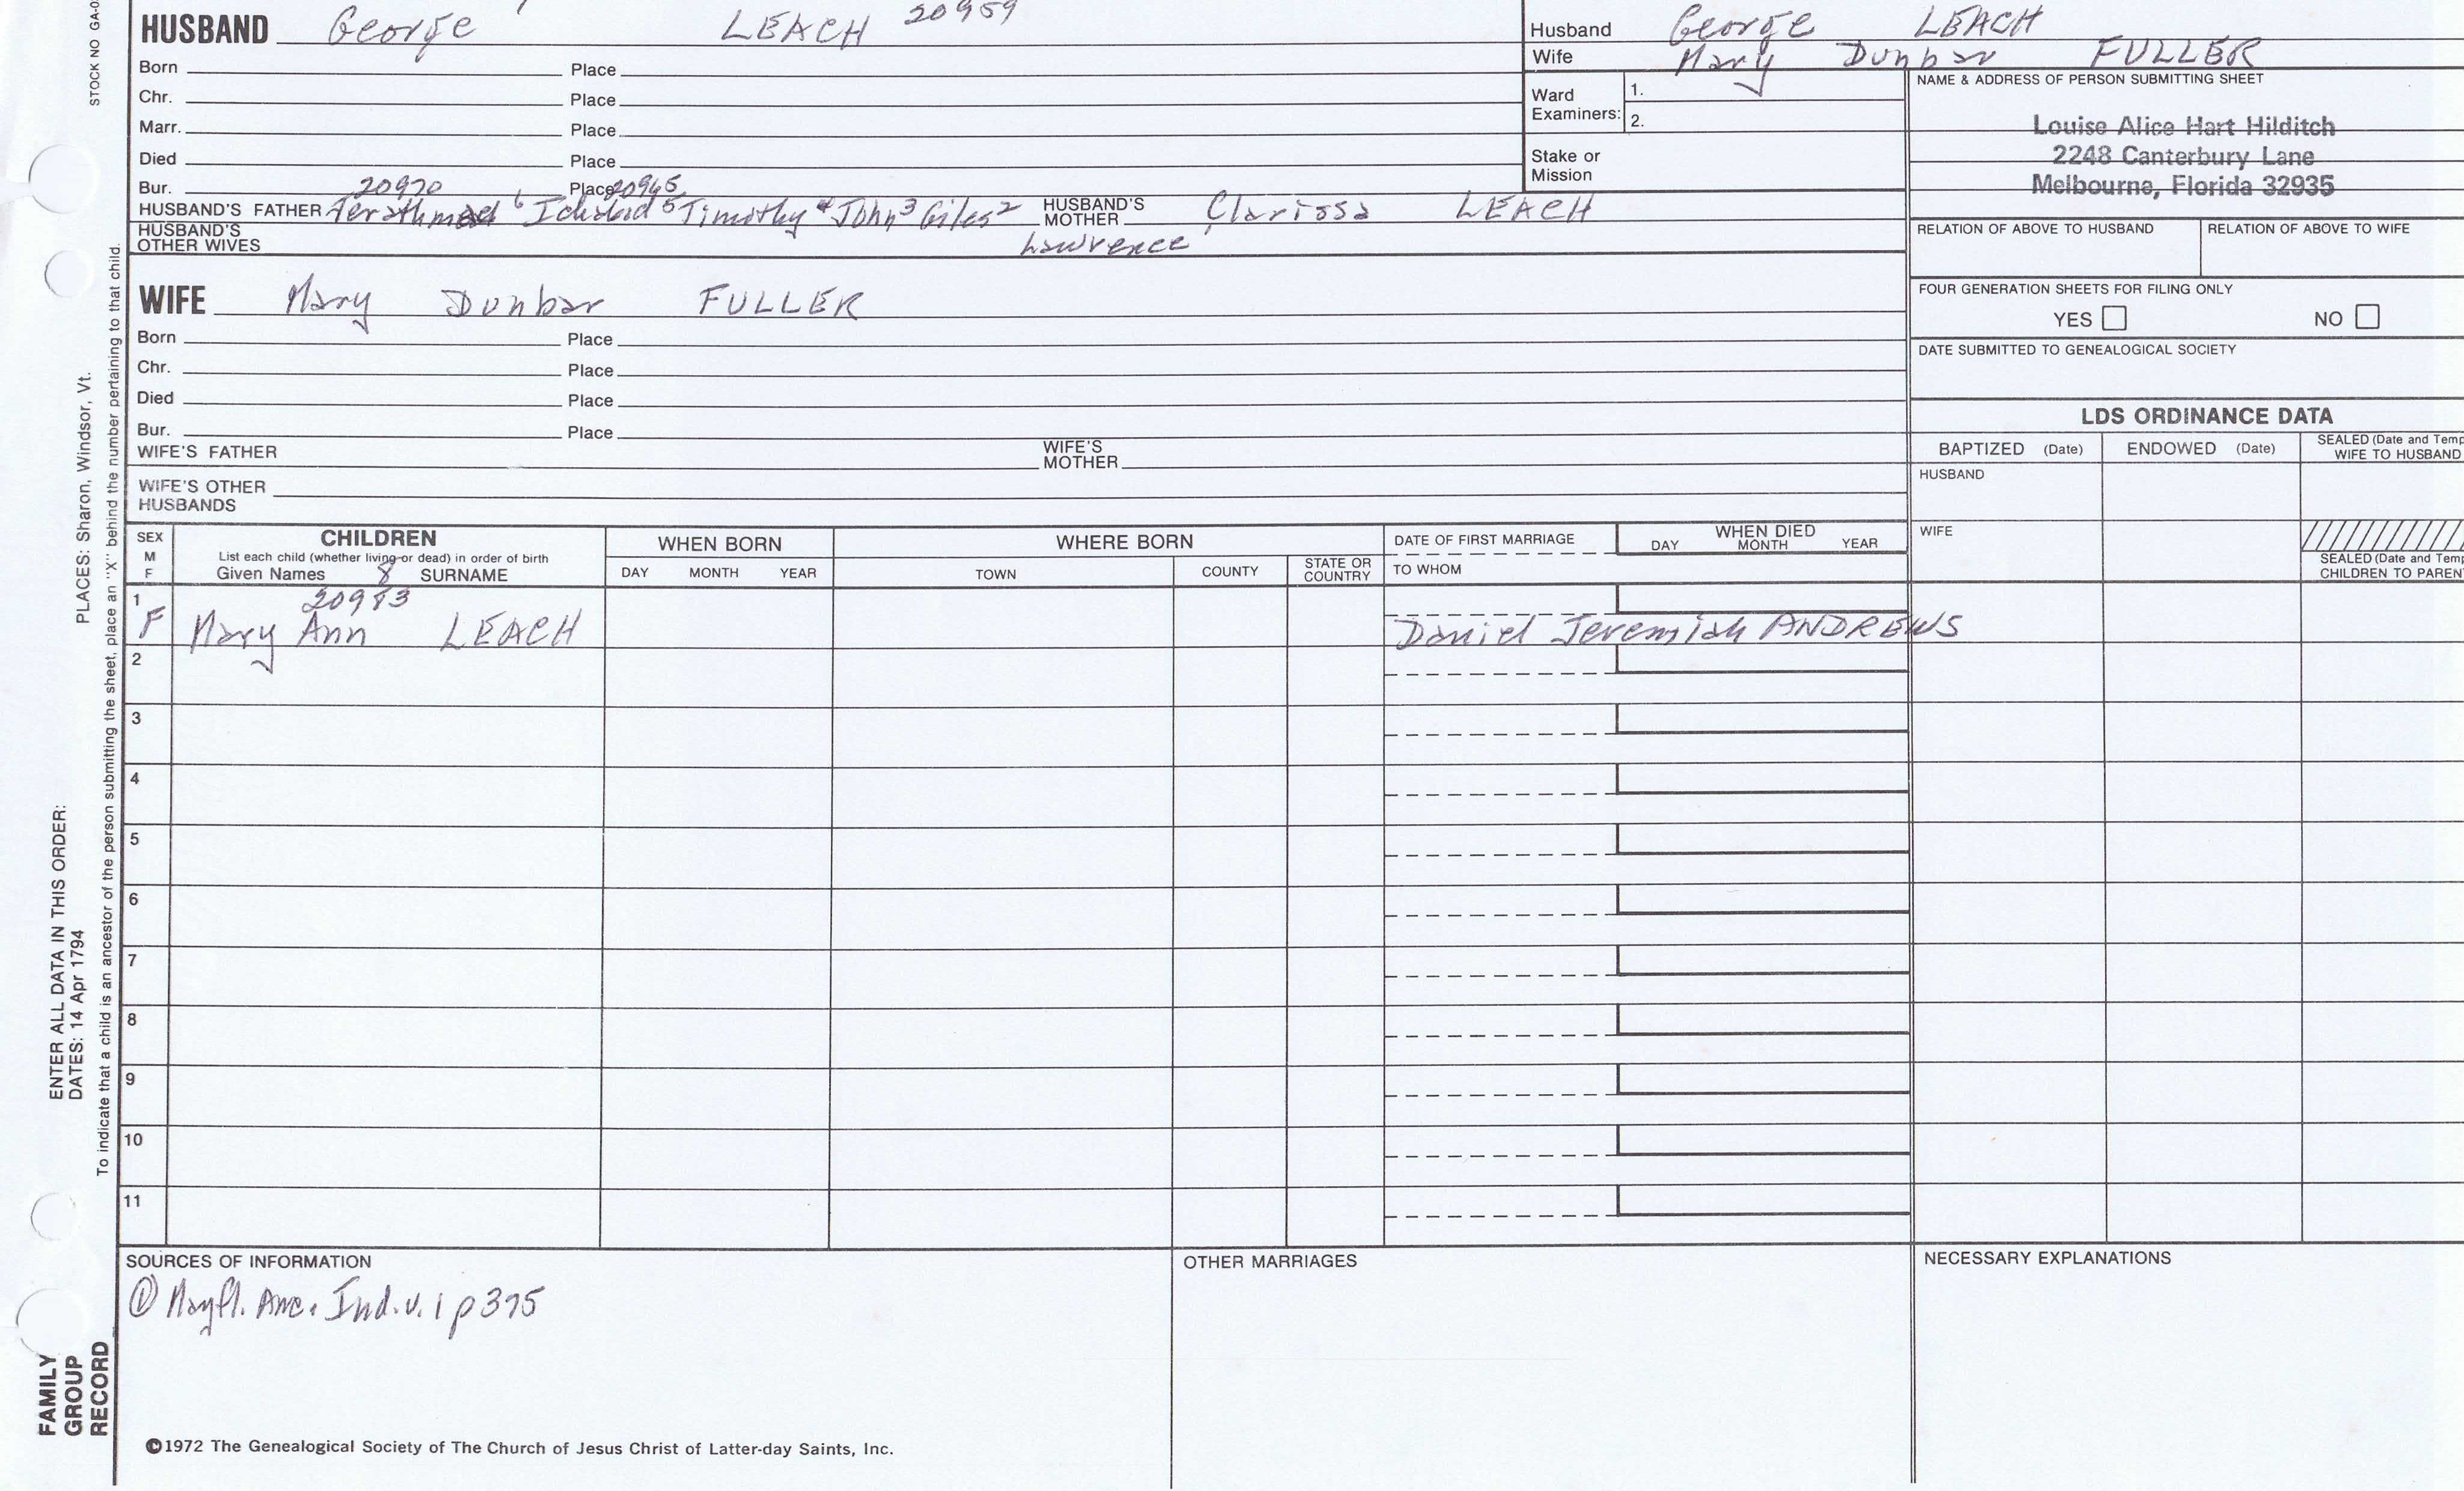 STOCK NO GA-0
HUSBAND George LEACH 20959
Born Place
Chr. Place
Marr. Place
Died Place
Bur. 20970 Place 20965
HUSBAND'S FATHER 6 Ichabod 5 Timothy 4 John 3 Giles 2 HUSBAND'S MOTHER Clarissa LEACH
HUSBAND'S OTHER WIVES Lawrence
Husband George LEACH
Wife Mary Dunbar FULLER
Ward Examiners: 1.
2.
Stake or Mission
NAME & ADDRESS OF PERSON SUBMITTING SHEET
Louise Alice Hart Hilditch
2248 Canterbury Lane
Melbourne, Florida 32935
RELATION OF ABOVE TO HUSBAND RELATION OF ABOVE TO WIFE
FOUR GENERATION SHEETS FOR FILING ONLY
YES NO
DATE SUBMITTED TO GENEALOGICAL SOCIETY
WIFE Mary Dunbar FULLER
Born Place
Chr. Place
Died Place
Bur. Place
WIFE'S FATHER WIFE'S MOTHER
WIFE'S OTHER HUSBANDS
LDS ORDINANCE DATA
BAPTIZED (Date) ENDOWED (Date) SEALED (Date and Temp
WIFE TO HUSBAND
HUSBAND
WIFE
SEALED (Date and Temp
CHILDREN TO PAREN
SEX M F
CHILDREN
List each child (whether living or dead) in order of birth
Given Names 8 SURNAME
WHEN BORN
DAY MONTH YEAR
WHERE BORN
TOWN COUNTY STATE OR COUNTRY
DATE OF FIRST MARRIAGE
TO WHOM
WHEN DIED
DAY MONTH YEAR
1 20983
F Mary Ann LEACH Daniel Jeremiah ANDREWS
2
3
4
5
6
7
8
9
10
11
SOURCES OF INFORMATION
① Mayfl. Anc. Ind. v. 1 p 375
OTHER MARRIAGES
NECESSARY EXPLANATIONS
©1972 The Genealogical Society of The Church of Jesus Christ of Latter-day Saints, Inc.
FAMILY
GROUP
RECORD
ENTER ALL DATA IN THIS ORDER:
DATES: 14 Apr 1794
PLACES: Sharon, Windsor, Vt.
To indicate that a child is an ancestor of the person submitting the sheet, place an "X" behind the number pertaining to that child.